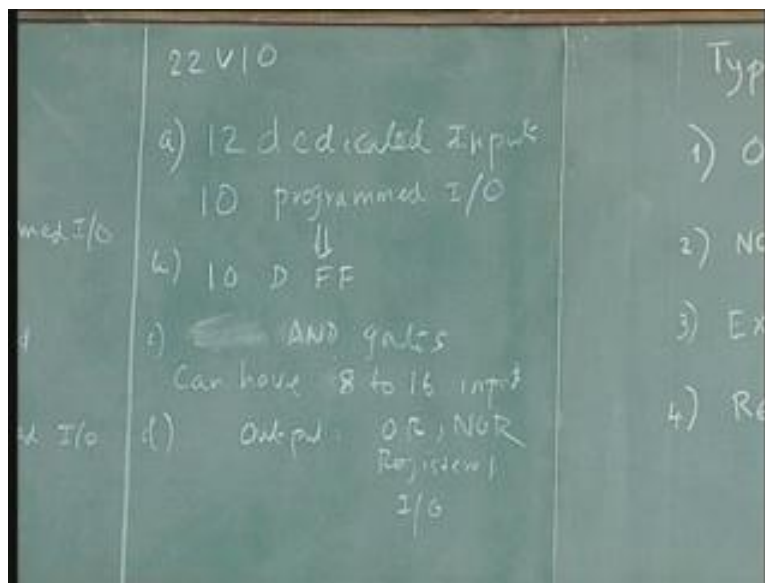 med I/O
d
ed I/O
22V10
a) 12 dedicated Inputs
10 programmed I/O
⇓
b) 10 D FF
c) AND gates
Can have 8 to 16 input
d) Output: OR, NOR
Registered,
I/O
Typ
1) O
2) NO
3) Ex
4) Re